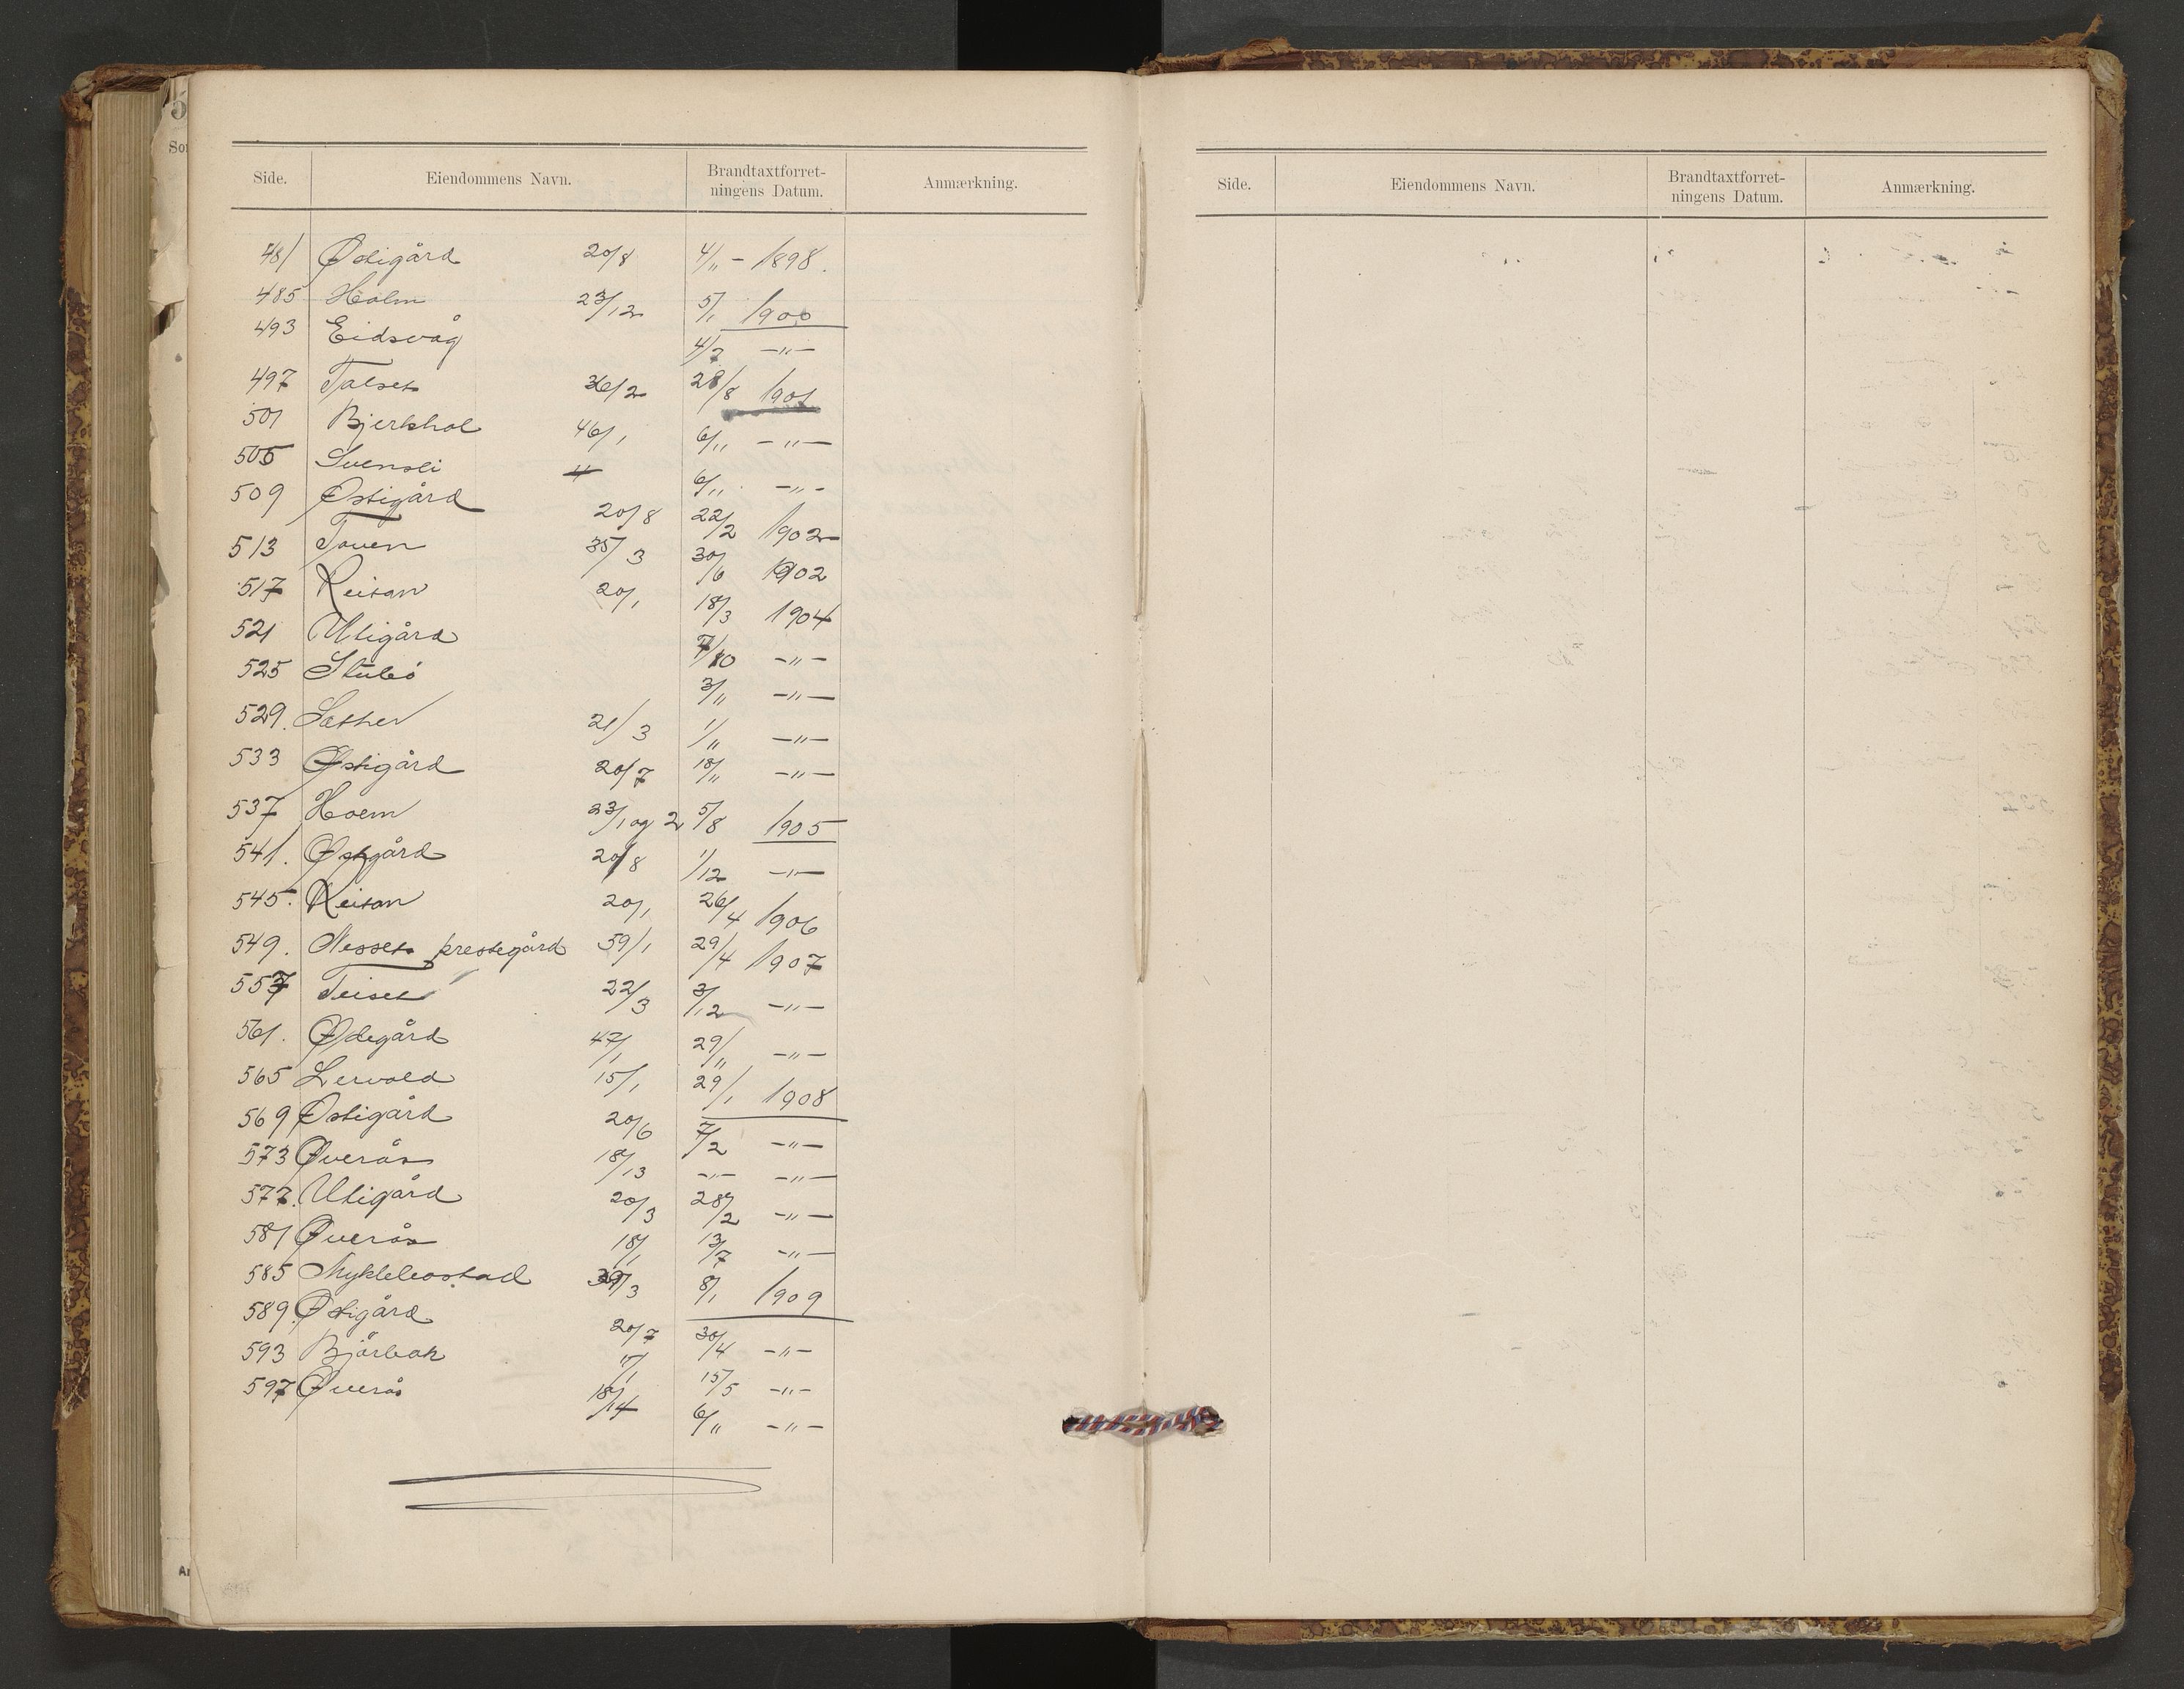 Side. Eiendommens Navn. Brandtaxtforret-
ningens Datum. Anmærkning.
481 Østigård 20/8 4/11 - 1898.
485 Holm 23/12 5/1 1900
493 Eidsvåg 4/7 -"-
497 Talset 36/2 28/8 1901
501 Bjerkhol 46/1 6/11 -"-
505 Svensli 6/11 -"-
509 Østigård 20/8 22/2 1902
513 Toven 35/3 30/6 1902
517 Reitan 20/1 18/3 1904
521 Utigård 7/10 -"-
525 Stubö 3/11 -"-
529. Sæther 21/3 1/11 -"-
533 Østigård 20/7 18/11 -"-
537 Hoem 23/1 og 2 5/8 1905
541. Østgård 20/8 1/12 -"-
545. Reitan 20/1 26/4 1906
549. Nesset prestegård 59/1 29/4 1907
557 Teiset 22/3 3/12 -"-
561. Ødegård 47/1 29/11 -"-
565 Lervold 15/1 29/1 1908
569 Østigård 20/6 7/2 -"-
573 Øverås 18/13 -"- -"-
577. Utigård 20/3 28/2 -"-
581 Øverås 18/1 13/7 -"-
585 Myklebostad 39/3 8/1 1909
589 Østigård 20/7 30/4 -"-
593 Bjørbak 17/1 15/5 -"-
597 Øverås 18/14 6/11 -"-
Side. Eiendommens Navn. Brandtaxtforret-
ningens Datum. Anmærkning.